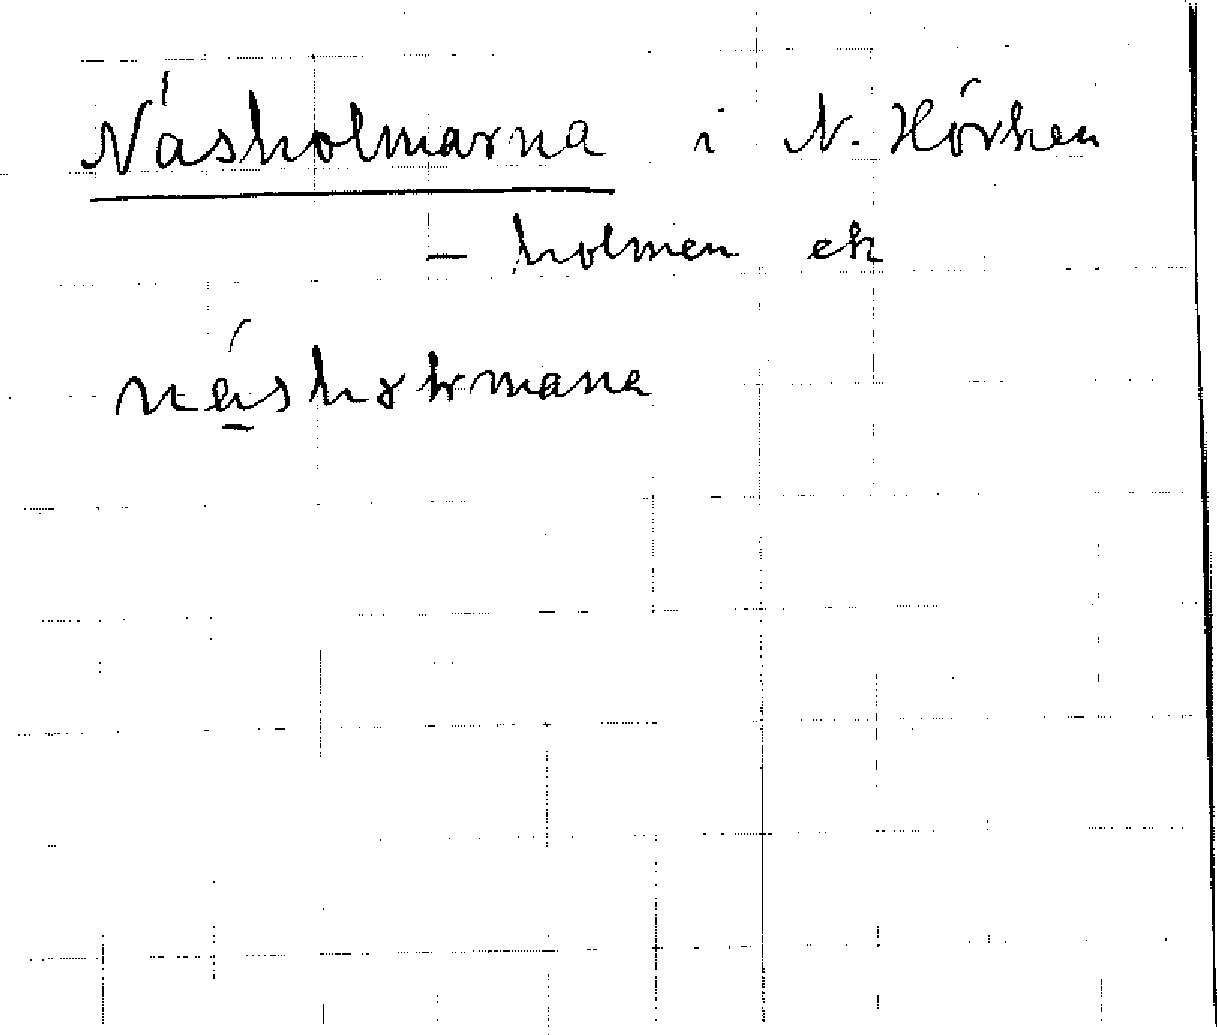 Näsholmarna i N. Hörken
– holmen ek
näshormana